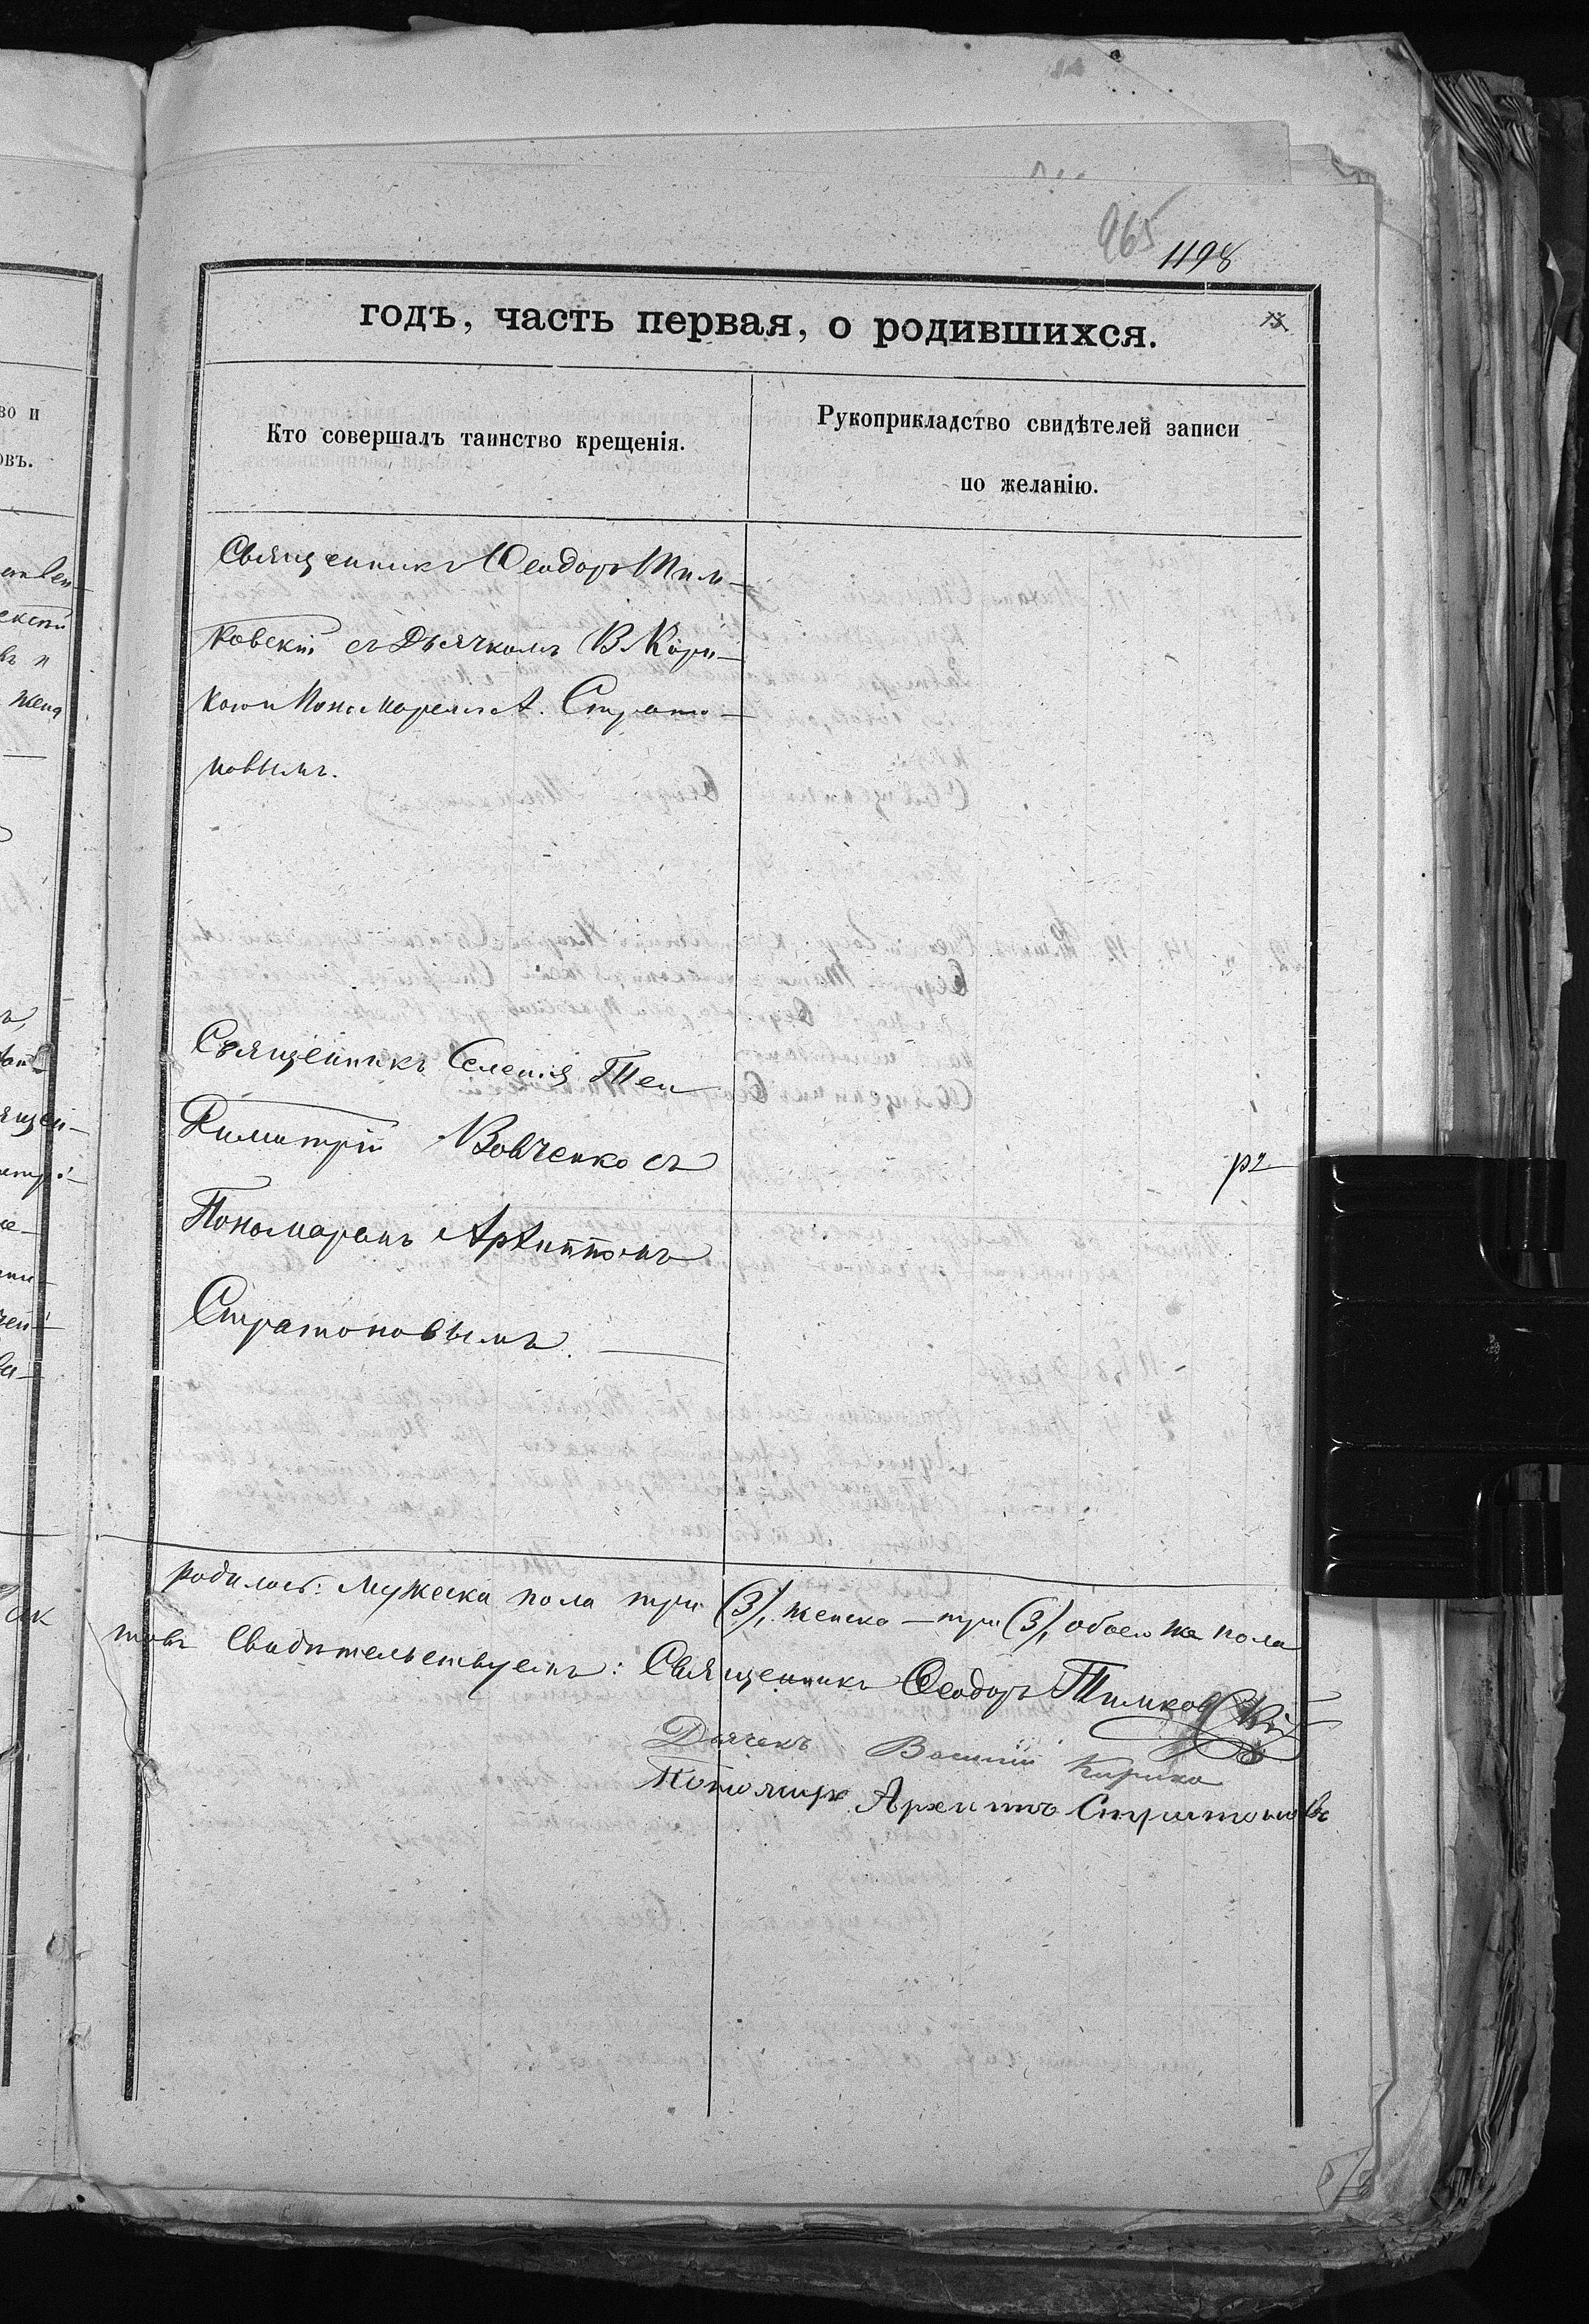 965
1198
годъ, часть первая, о родившихся.
во и
овъ.
Кто совершалъ таинство крещенія.
Рукоприкладство свидѣтелей записи
по желанію.
Священникъ Ѳеодоръ Тим-
ковскій съ Дьячкомъ В. Кири-
кою и Пономаремъ А. Страто-
новымъ.
жена
Священникъ Селенія
Димитрій Вовченко съ
Пономаремъ Архиппомъ
Стратоновымъ.
родилось: Мужеска пола три (3), женска – три (3), обоего же пола
Свидѣтельствуемъ: Священникъ Ѳеодоръ Тимковскій
Дьячекъ Василій Кирика
Пономарь Архиппъ Стратоновъ